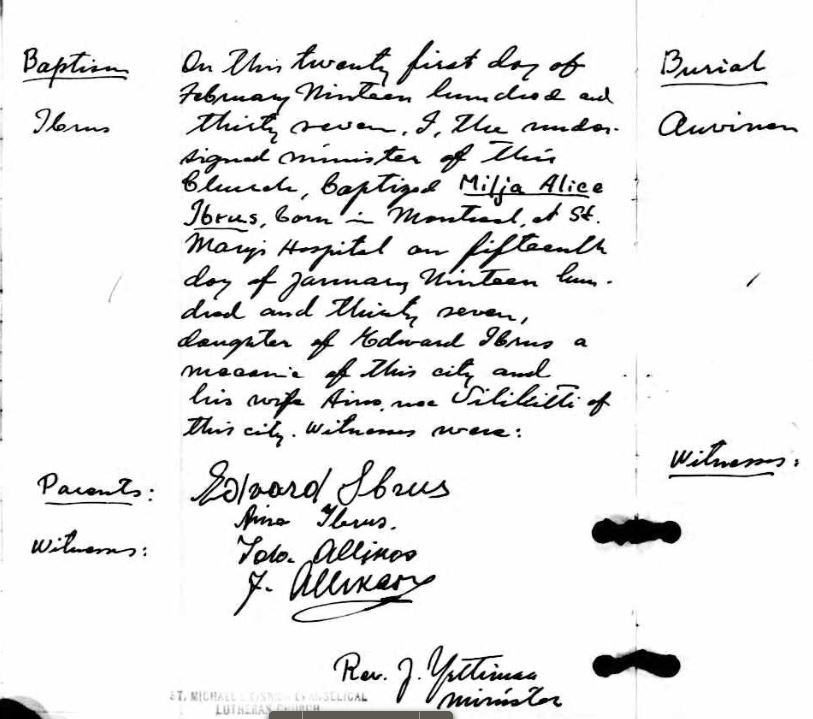 Baptism
Ibrus
On this twenty first day of
February Nineteen hundred and
thirty seven, I, the under-
signed minister of this
Church, Baptized Milja Alice
Ibrus, born in Montreal, at St.
Mary's Hospital on fifteenth
day of January Nineteen hun-
dred and thirty seven,
daughter of Edward Ibrus a
mecanic of this city and
his wife Aino, nee of
this city. Witnesses were:
Parents:
Edvard Ibrus
Aino Ibrus.
Witnesses:
Ida
J.
Rev. J.
minister
ST. MICHAEL'S FINNISH EVANGELICAL
LUTHERAN CHURCH
Burial
Auvinen
Witnesses: